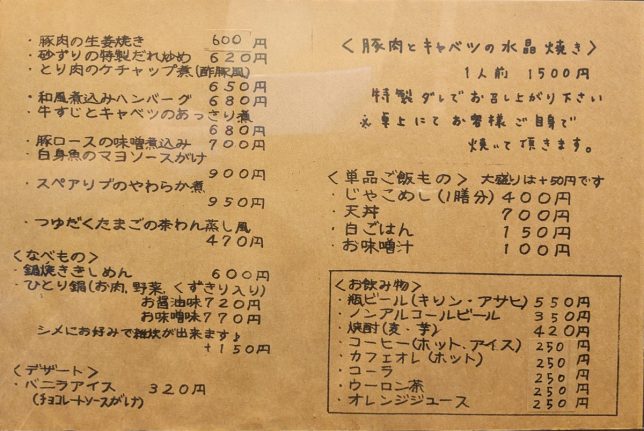 ・豚肉の生姜焼き 600円
・砂ずりの特製だれ炒め 620円
・とり肉のケチャップ煮(酢豚風)
650円
・和風煮込みハンバーグ 680円
・牛すじとキャベツのあっさり煮
680円
・豚ロースの味噌煮込み 700円
・白身魚のマヨソースがけ
900円
・スペアリブのやわらか煮
950円
・つゆだくたまごの茶わん蒸し風
470円
<なべもの>
・鍋焼ききしめん 600円
・ひとり鍋(お肉、野菜、くずきり入り)
お醤油味 720円
お味噌味 770円
シメにお好みで雑炊が出来ます♪
+150円
<デザート>
・バニラアイス 320円
(チョコレートソースがけ)
<豚肉とキャベツの水晶焼き>
1人前 1500円
特製ダレでお召し上がり下さい
※卓上にてお客様ご自身で
焼いて頂きます。
<単品ご飯もの> 大盛りは+50円です
・じゃこめし(1膳分) 400円
・天丼 700円
・白ごはん 150円
・お味噌汁 100円
<お飲み物>
・瓶ビール(キリン・アサヒ) 550円
・ノンアルコールビール 350円
・焼酎(麦・芋) 420円
・コーヒー(ホット、アイス) 250円
・カフェオレ(ホット) 250円
・コーラ 250円
・ウーロン茶 250円
・オレンジジュース 250円